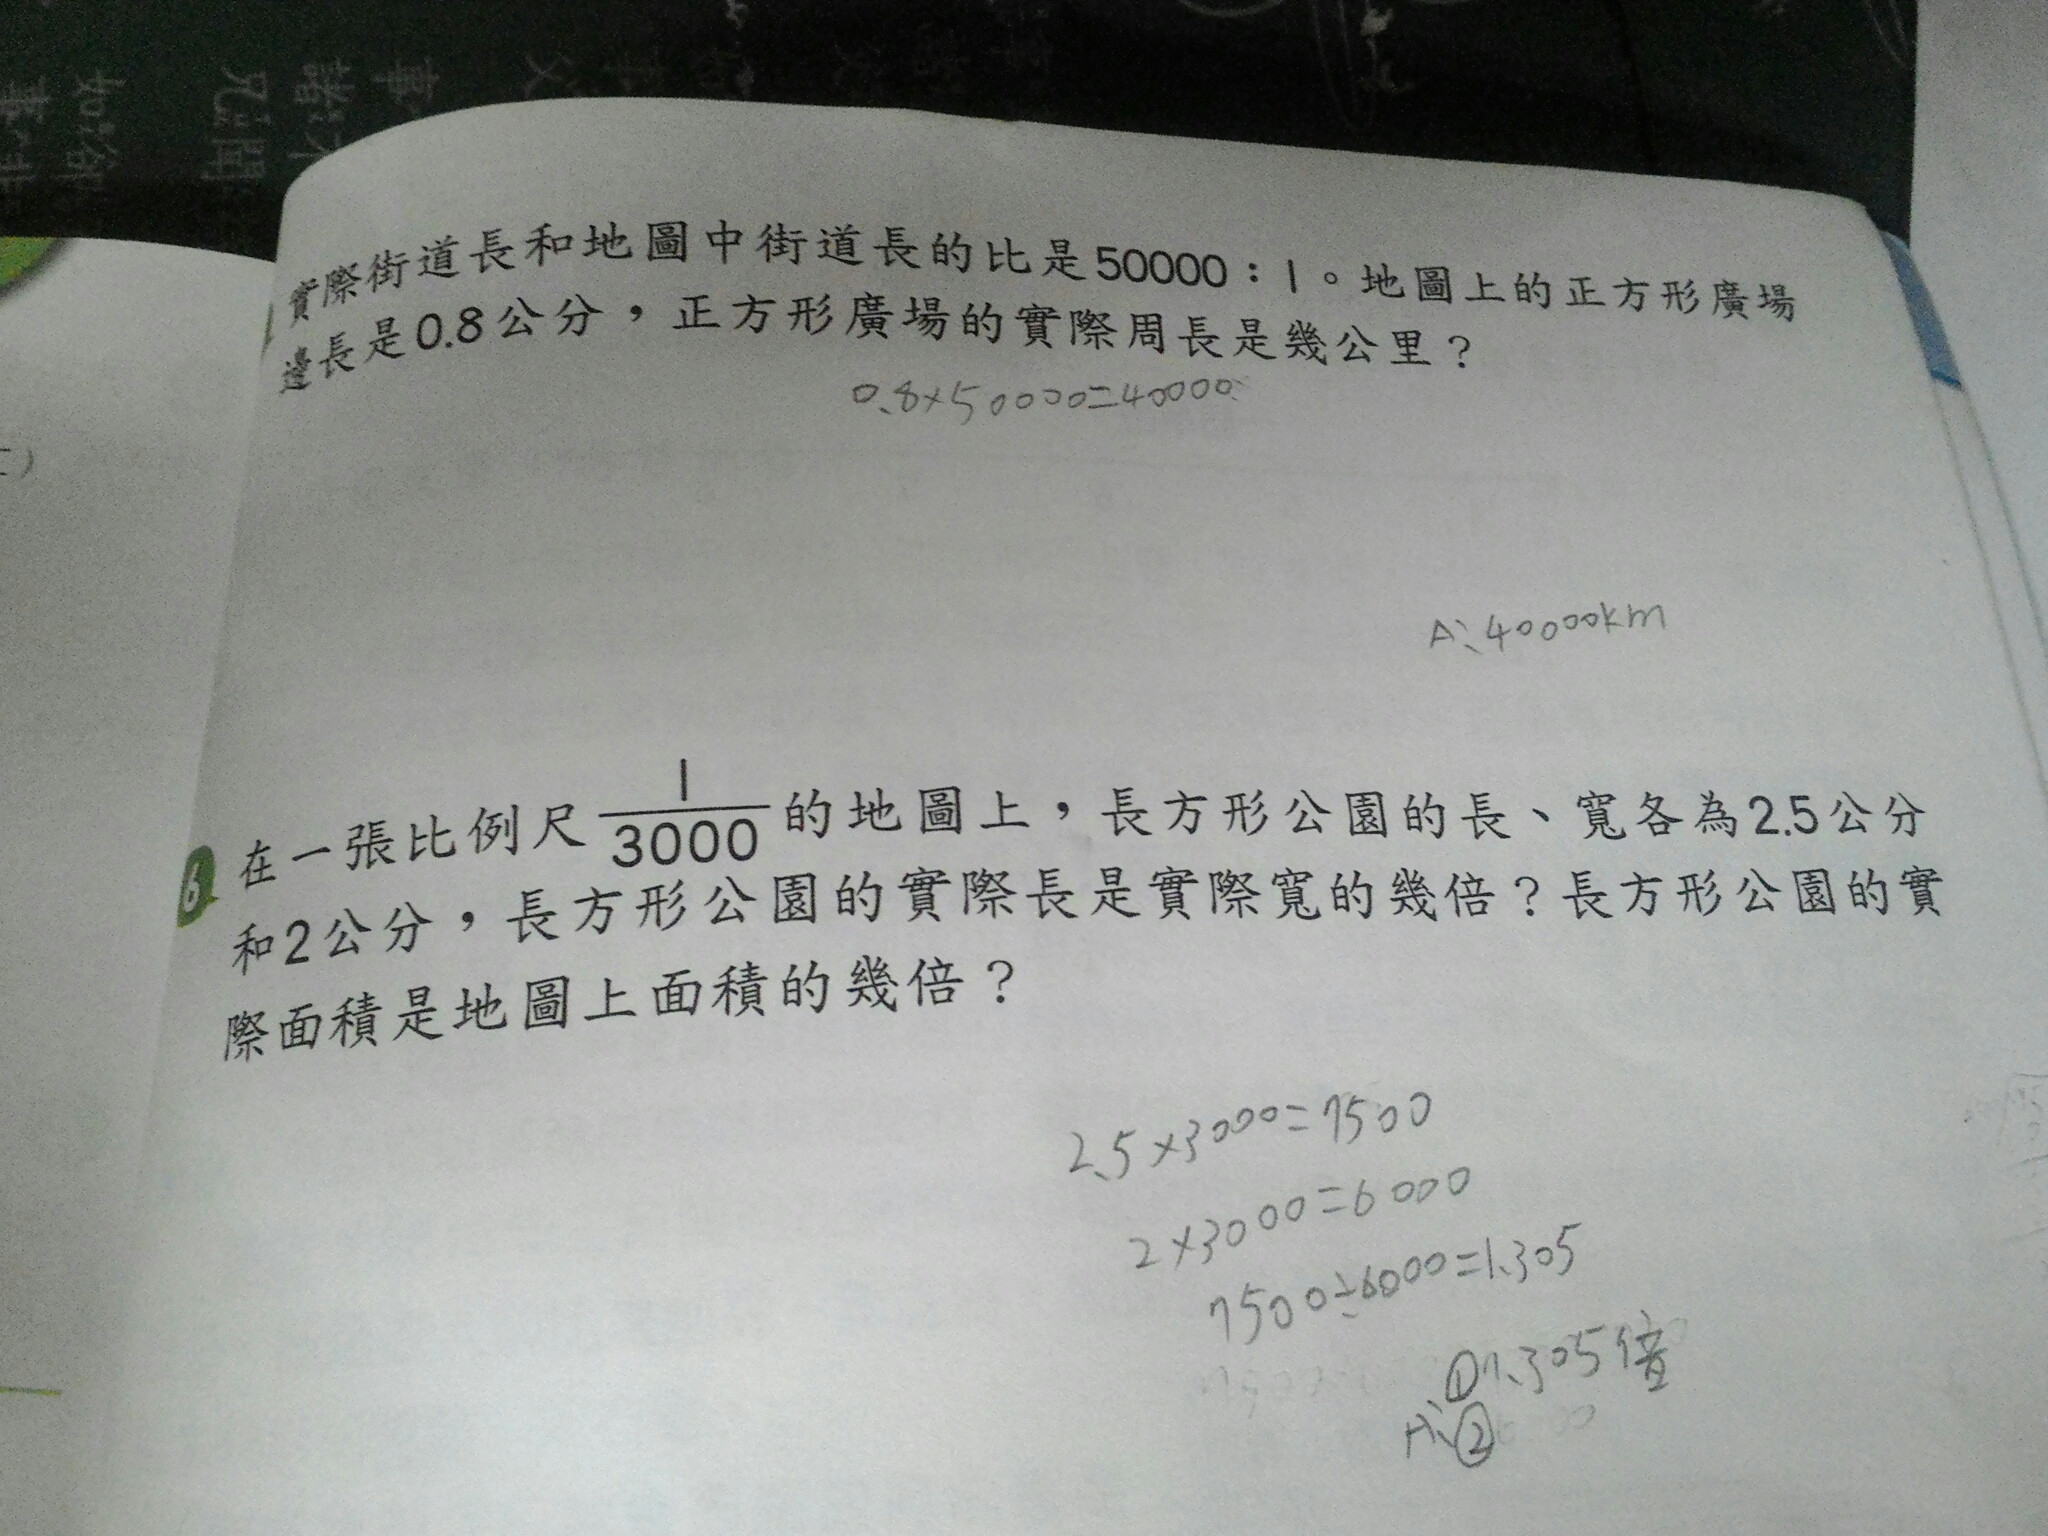 實際街道長和地圖中街道長的比是50000：1。地圖上的正方形廣場
邊長是0.8公分，正方形廣場的實際周長是幾公里？
0.8×50000=40000
A、40000km
6 在一張比例尺1/3000的地圖上，長方形公園的長、寬各為2.5公分
和2公分，長方形公園的實際長是實際寬的幾倍？長方形公園的實
際面積是地圖上面積的幾倍？
2.5×3000=7500
2×3000=6000
7500÷6000=1.305
①1.305倍
A、②